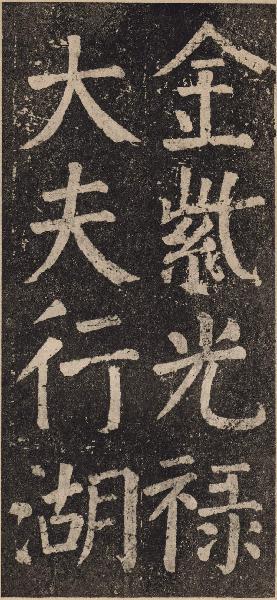 金紫光祿
大夫行湖